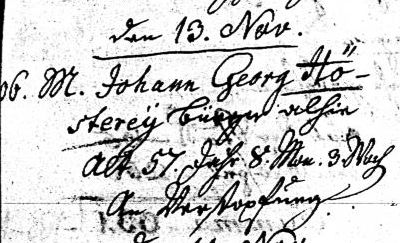 den 13. Nov.
06. M. Johann Georg Hö-
sterey burger alhie
Alt. 57. Jahr 8. Mon. 3. Woch
An Verstopfung.